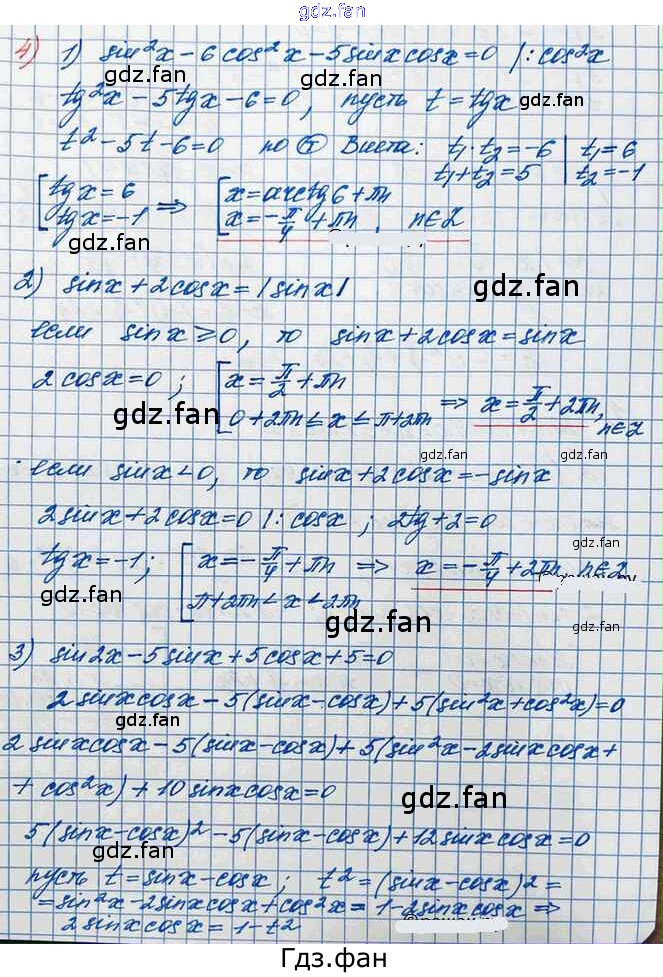 gdz.fan
4) 1) sin²x - 6cos²x - 5sinxcosx = 0 |: cos²x
gdz.fan gdz.fan
tg²x - 5tgx - 6 = 0, пусть t = tgx
gdz.fan
t² - 5t - 6 = 0 по Ⓣ Виета: t₁·t₂ = -6 | t₁ = 6
t₁ + t₂ = 5 | t₂ = -1
[tgx = 6 ⇒ [x = arctg6 + πn
[tgx = -1 [x = -π/4 + πn, n∈Z
gdz.fan gdz.fan
2) sinx + 2cosx = |sinx|
gdz.fan
если sinx ≥ 0, то sinx + 2cosx = sinx
2cosx = 0; [x = π/2 + πn
[0 + 2πn ≤ x ≤ π + 2πn ⇒ x = π/2 + 2πn, n∈Z
gdz.fan gdz.fan
gdz.fan
если sinx < 0, то sinx + 2cosx = -sinx
2sinx + 2cosx = 0 |: cosx; 2tg + 2 = 0
gdz.fan
tgx = -1; [x = -π/4 + πn ⇒ x = -π/4 + 2πn, n∈Z
[π + 2πn < x < 2πn
gdz.fan gdz.fan
gdz.fan
3) sin2x - 5sinx + 5cosx + 5 = 0
2sinxcosx - 5(sinx - cosx) + 5(sin²x + cos²x) = 0
gdz.fan
2sinxcosx - 5(sinx - cosx) + 5(sin²x - 2sinxcosx +
+ cos²x) + 10sinxcosx = 0
gdz.fan
5(sinx - cosx)² - 5(sinx - cosx) + 12sinxcosx = 0
gdz.fan
пусть t = sinx - cosx; t² = (sinx - cosx)² =
= sin²x - 2sinxcosx + cos²x = 1 - 2sinxcosx ⇒
2sinxcosx = 1 - t²
gdz.fan
Гдз.фан